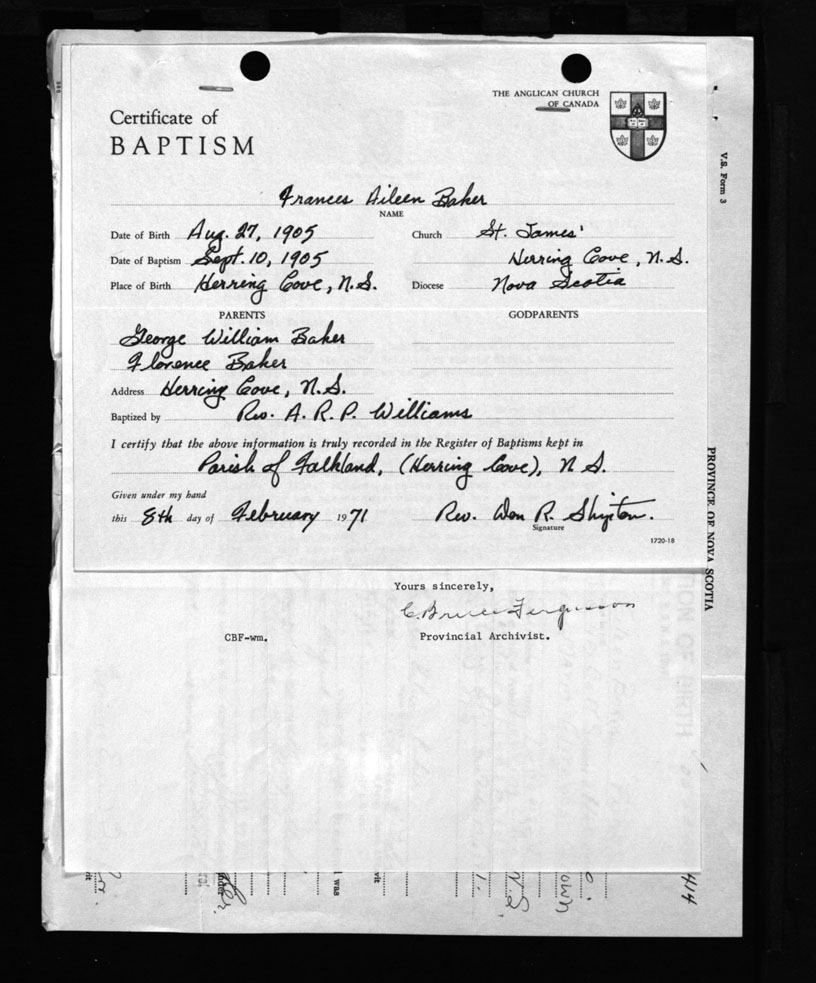 THE ANGLICAN CHURCH
OF CANADA
Certificate of
BAPTISM
Frances Aileen Baker
NAME
Date of Birth Aug. 27, 1905
Church St. James'
Date of Baptism Sept. 10, 1905
Herring Cove, N.S.
Place of Birth Herring Cove, N.S.
Diocese Nova Scotia
PARENTS
GODPARENTS
George William Baker
Florence Baker
Address Herring Cove, N.S.
Baptized by Rev. A. R. P. Williams
I certify that the above information is truly recorded in the Register of Baptisms kept in
Parish of Falkland, (Herring Cove), N.S.
Given under my hand
this 8th day of February 1971
Rev. Don R. Shipton.
Signature
1720-18
Yours sincerely,
C. Bruce Fergusson
CBF-wm.
Provincial Archivist.
V.S. Form 3
PROVINCE OF NOVA SCOTIA
ON OF BIRTH
I was
own
N.S.
414